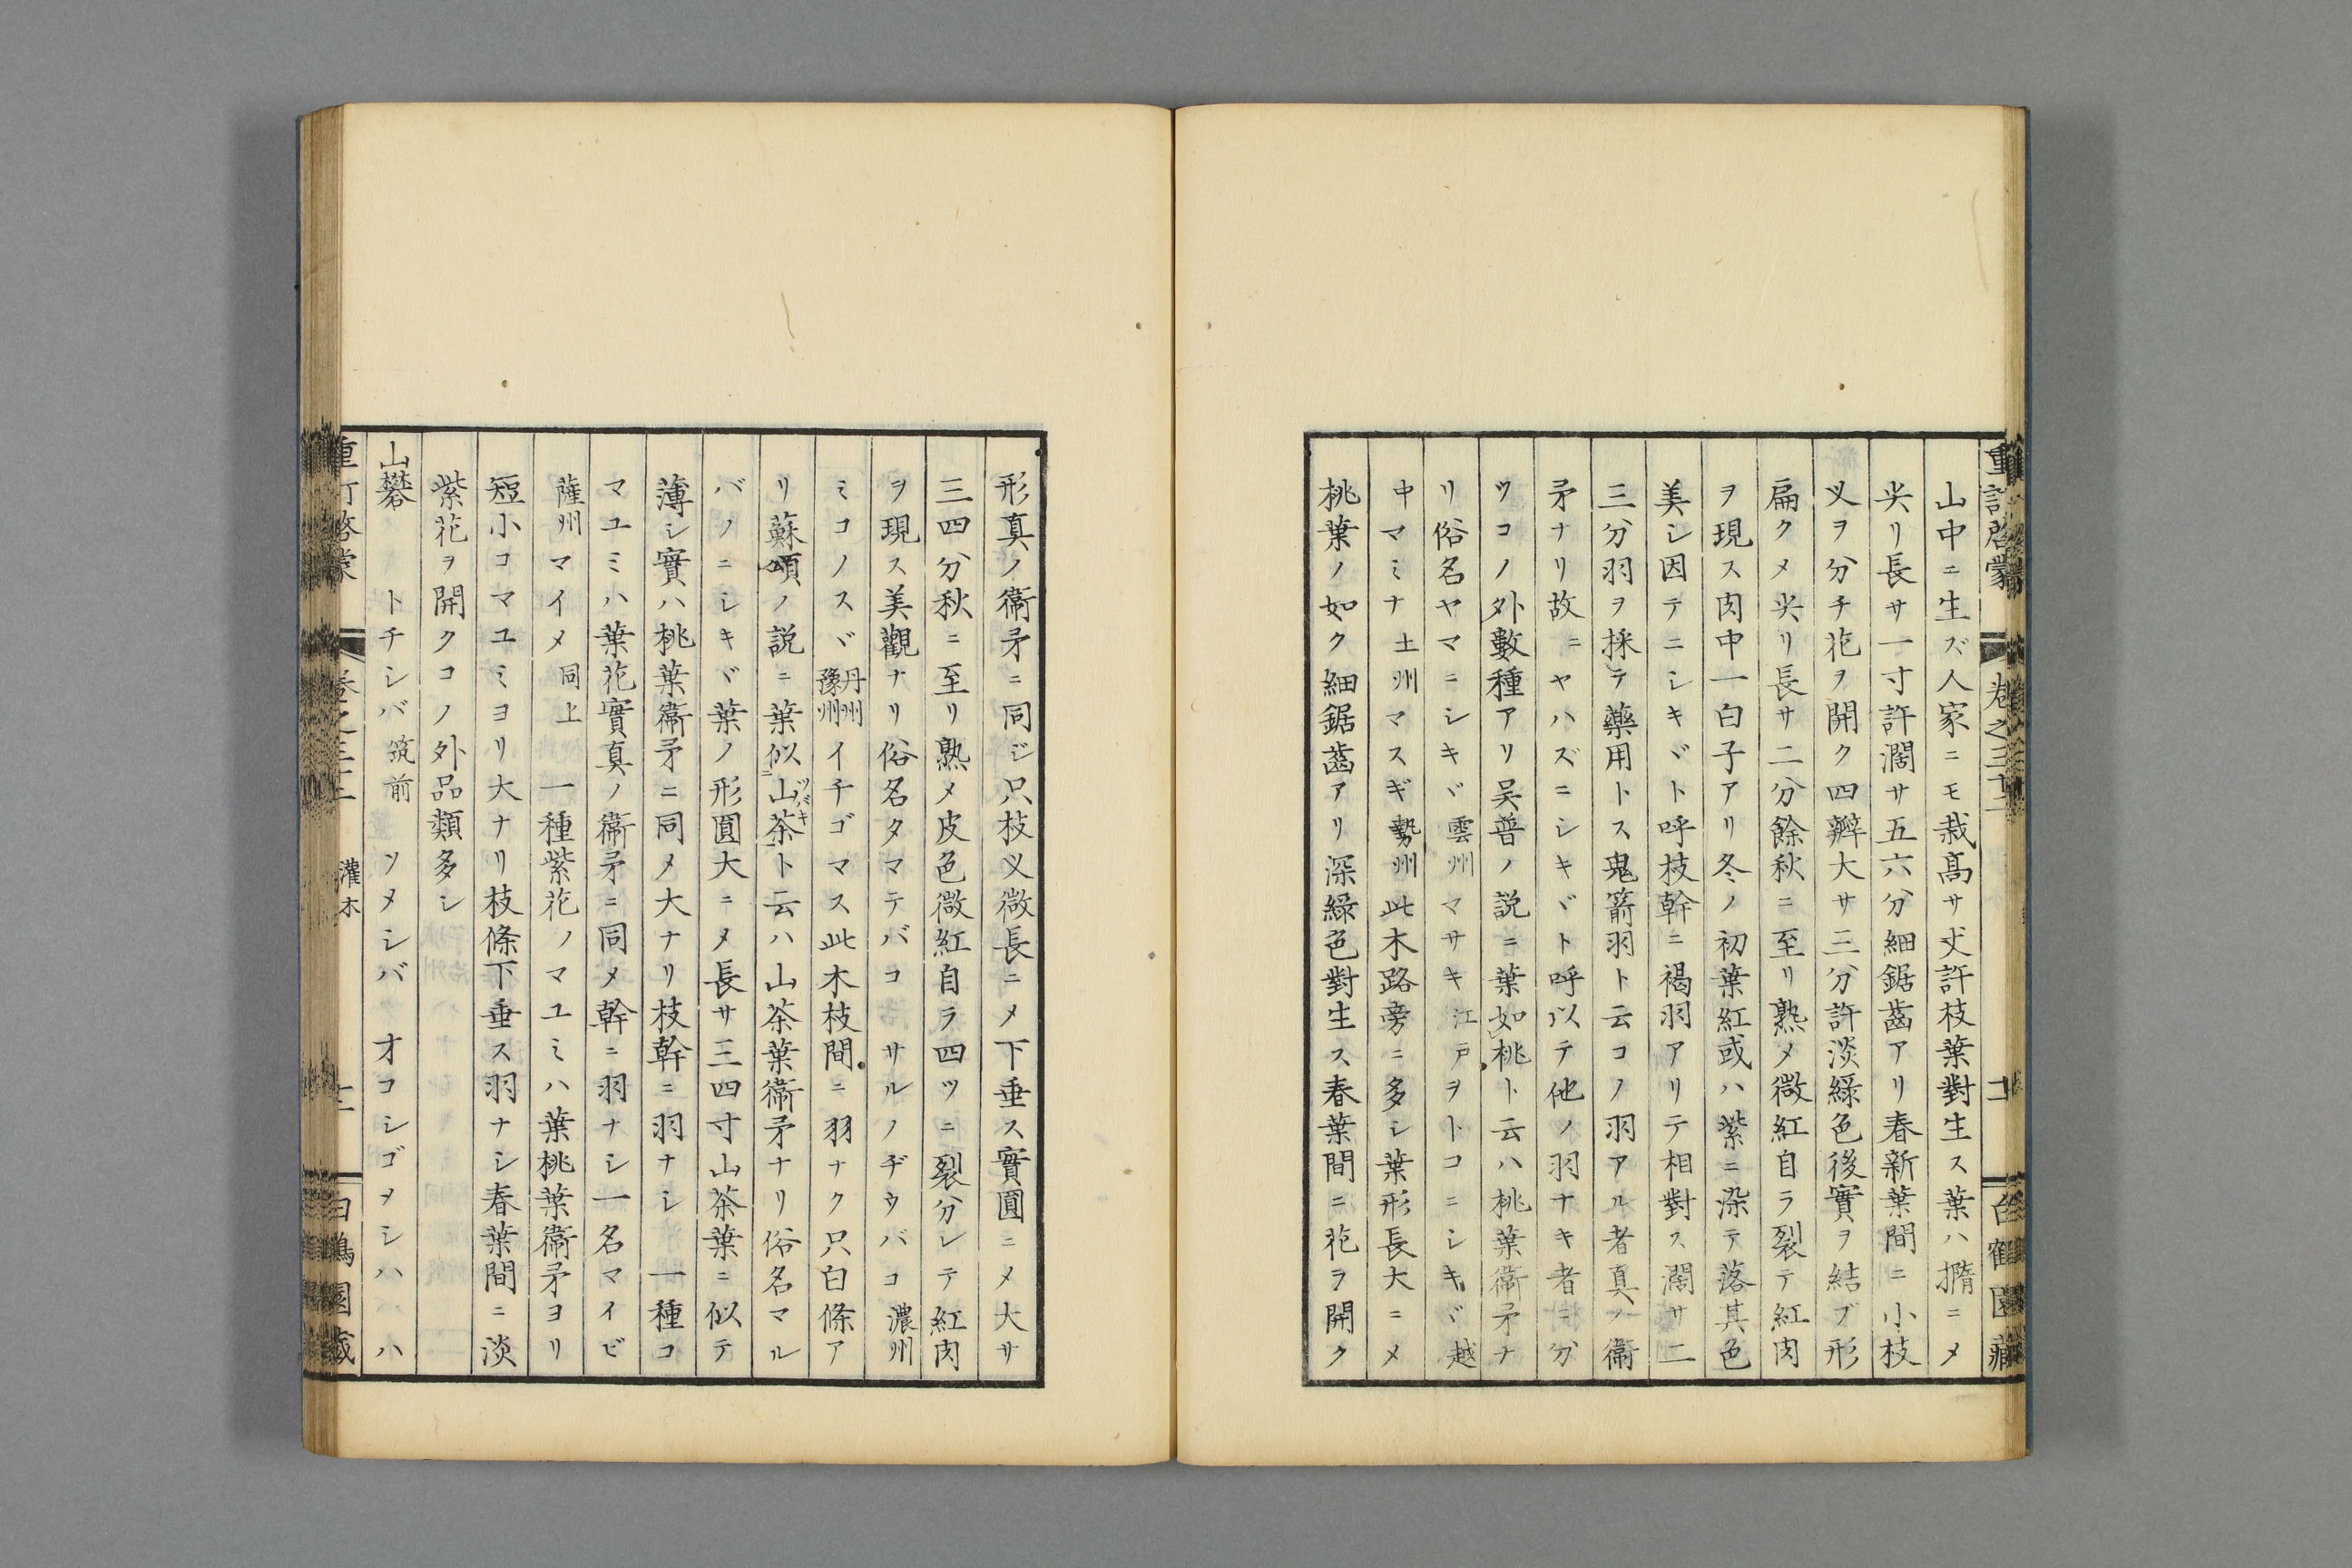 重訂啓蒙　卷之三十二
山中ニ生ズ人家ニモ栽高サ丈許枝葉對生ス葉ハ撱ニメ
尖リ長サ一寸許濶サ五六分細鋸齒アリ春新葉間ニ小枝
义ヲ分チ花ヲ開ク四瓣大サ三分許淡綠色後實ヲ結ブ形
扁クメ尖リ長サ二分餘秋ニ至リ熟メ微紅自ラ裂テ紅肉
ヲ現ス肉中一白子アリ冬ノ初葉紅或ハ紫ニ染テ落其色
美シ因テニシキヾト呼枝幹ニ褐羽アリテ相對ス濶サ二
三分羽ヲ採テ藥用トス鬼箭羽ト云コノ羽アル者真ノ衞
矛ナリ故ニヤハズニシキヾト呼以テ他ノ羽ナキ者ニ分
ツコノ外數種アリ吴普ノ説ニ葉如桃ト云ハ桃葉衞矛ナ
リ俗名ヤマニシキヾ雲州マサキ江戸ヲトコニシキヾ越
中マミナ土州マスギ勢州此木路旁ニ多シ葉形長大ニメ
桃葉ノ如ク細鋸齒アリ深綠色對生ス春葉間ニ花ヲ開ク
形真ノ衞矛ニ同ジ只枝义微長ニメ下垂ス實圓ニメ大サ
三四分秋ニ至リ熟メ皮色微紅自ラ四ツニ裂分レテ紅肉
ヲ現ス美觀ナリ俗名タマテバコ サルノヂウバコ濃州
ミコノスヾ丹州豫州イチゴマス此木枝間ニ羽ナク只白條ア
リ蘇頌ノ説ニ葉似ニ山茶ツバキト云ハ山茶葉衞矛ナリ俗名マル
バノニシキヾ葉ノ形圓大ニメ長サ三四寸山茶葉ニ似テ
薄シ實ハ桃葉衞矛ニ同メ大ナリ枝幹ニ羽ナシ 一種コ
マユミハ葉花實真ノ衞矛ニ同メ幹ニ羽ナシ一名マイビ
薩州マイメ同上 一種紫花ノマユミハ葉桃葉衞矛ヨリ
短小コマユミヨリ大ナリ枝條下垂ス羽ナシ春葉間ニ淡
紫花ヲ開クコノ外品類多シ
山礬　トチシバ筑前 ソメシバ オコシゴヲシハ　ハ
灌木